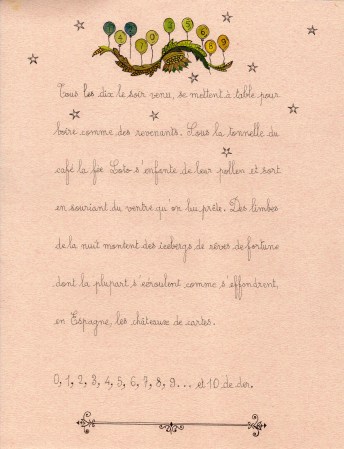 4 7 9 2 5 6 8 9
Tous les dix le soir venu, se mettent à table pour
boire comme des revenants. Sous la tonnelle du
café la fée Loto s'enfante de leur pollen et sort
en souriant du ventre qu'on lui prête. Des limbes
de la nuit montent des icebergs de rêves de fortune
dont la plupart s'écroulent comme s'effondrent,
en Espagne, les châteaux de cartes.
0, 1, 2, 3, 4, 5, 6, 7, 8, 9... et 10 de der.